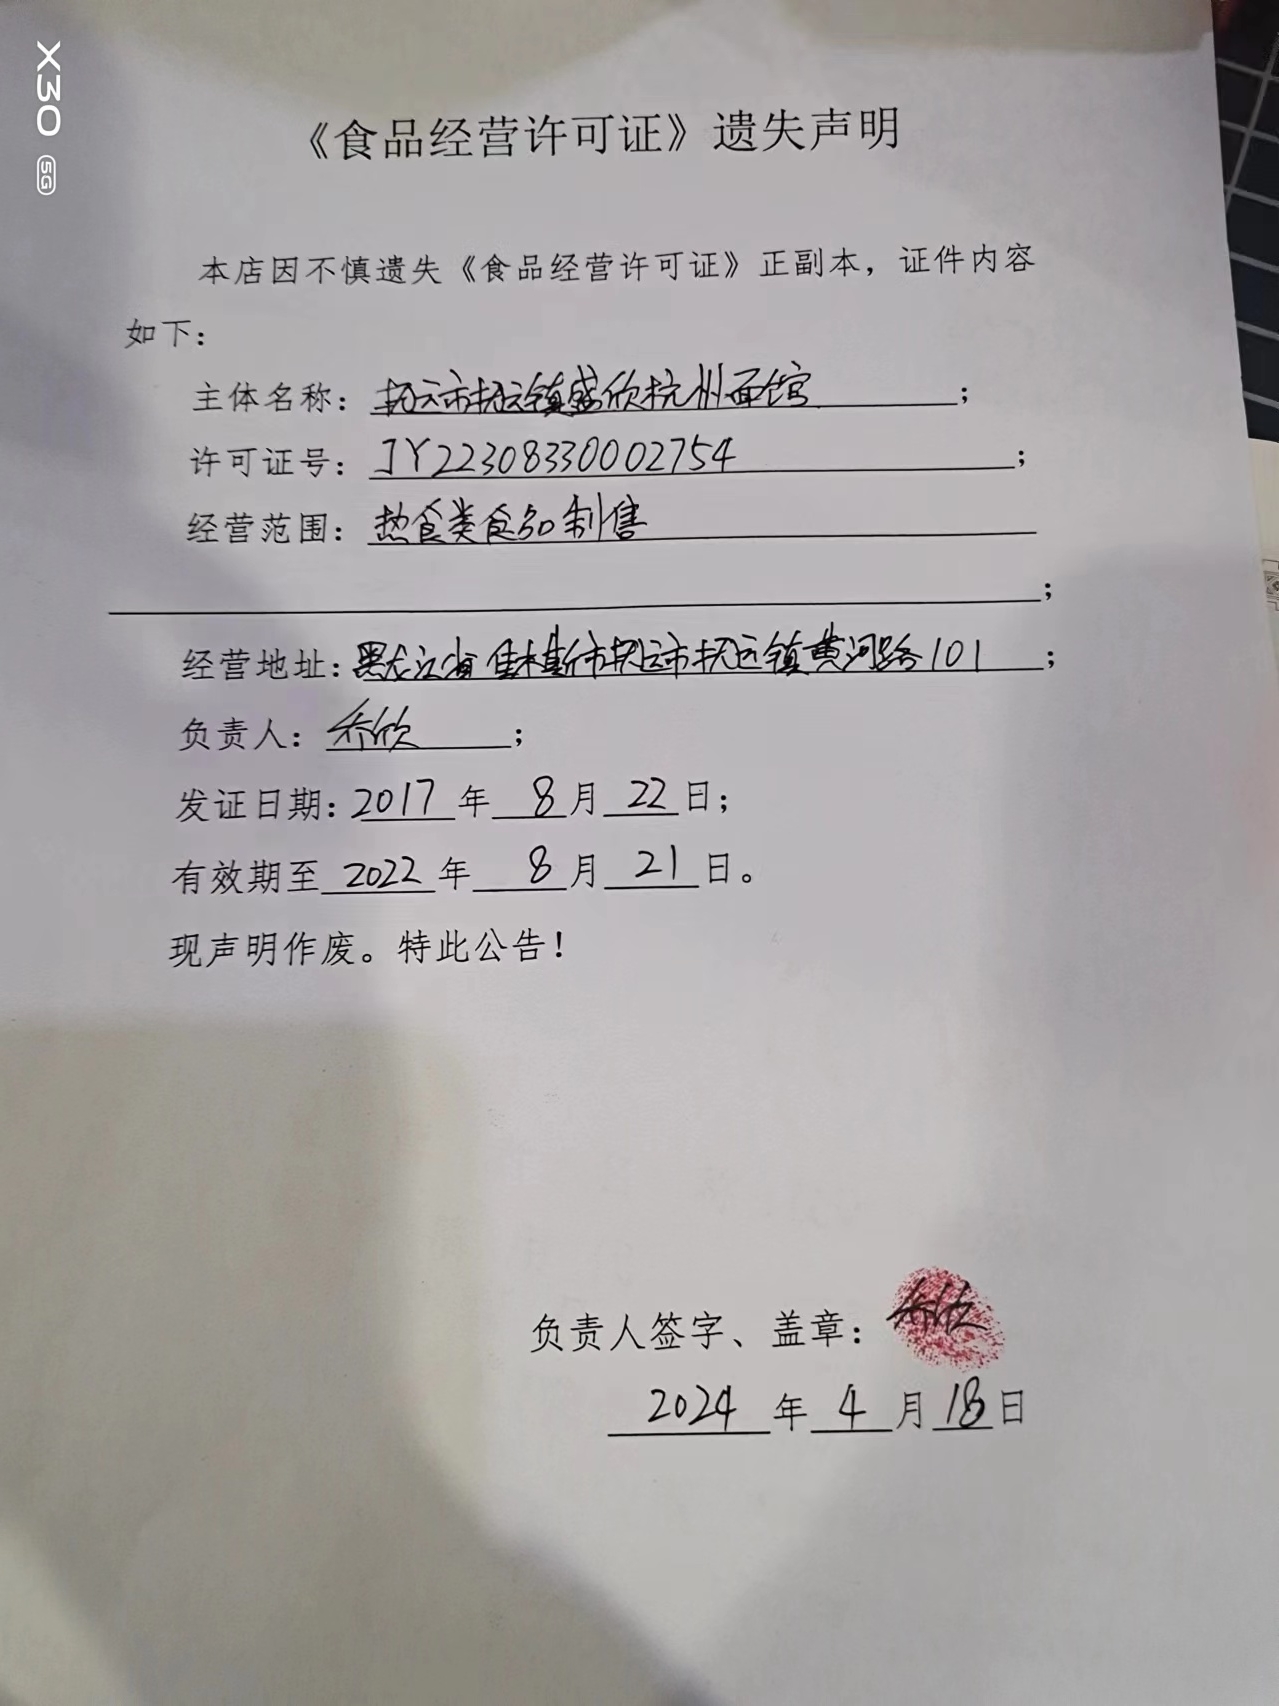 X30 5G
《食品经营许可证》遗失声明
本店因不慎遗失《食品经营许可证》正副本，证件内容
如下：
主体名称：抚远市抚远镇盛欣杭州面馆；
许可证号：JY22308330002754；
经营范围：热食类食品制售
；
经营地址：黑龙江省佳木斯市抚远市抚远镇黄河路101；
负责人：乔欣；
发证日期：2017年8月22日；
有效期至2022年8月21日。
现声明作废。特此公告！
负责人签字、盖章：乔欣
2024年4月18日